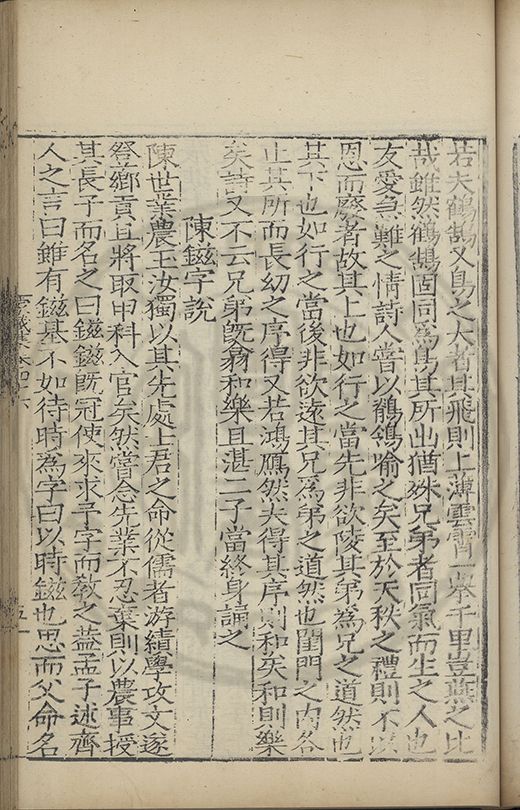 若夫鶴鵠又鳥之大者其飛則上薄雲霄一舉千里豈燕之比
哉雖然鶴鵠固同為鳥其所出猶姝兄弟者同氣而生之人也
友愛急難之情詩人嘗以鶺鴒喻之矣至於天秩之禮則不以
恩而廢者故其上也如行之當先非欲陵其弟為兄之道然也
其下也如行之當後非欲遠其兄為弟之道然也閨門之内各
止其所而長幼之序得又若鴻鴈然夫得其序則和矣和則樂
矣詩又不云兄弟旣翕和樂且湛二子當終身誦之
陳鎡字說
陳世業農玉汝獨以其先處士君之命從儒者游績學攻文遂
登鄉貢且將取甲科入官矣然嘗念先業不忍棄則以農事授
其長子而名之曰鎡鎡旣冠使來求予字而敎之蓋孟子述齊
人之言曰雖有鎡基不如待時為字曰以時鎡也思而父命名